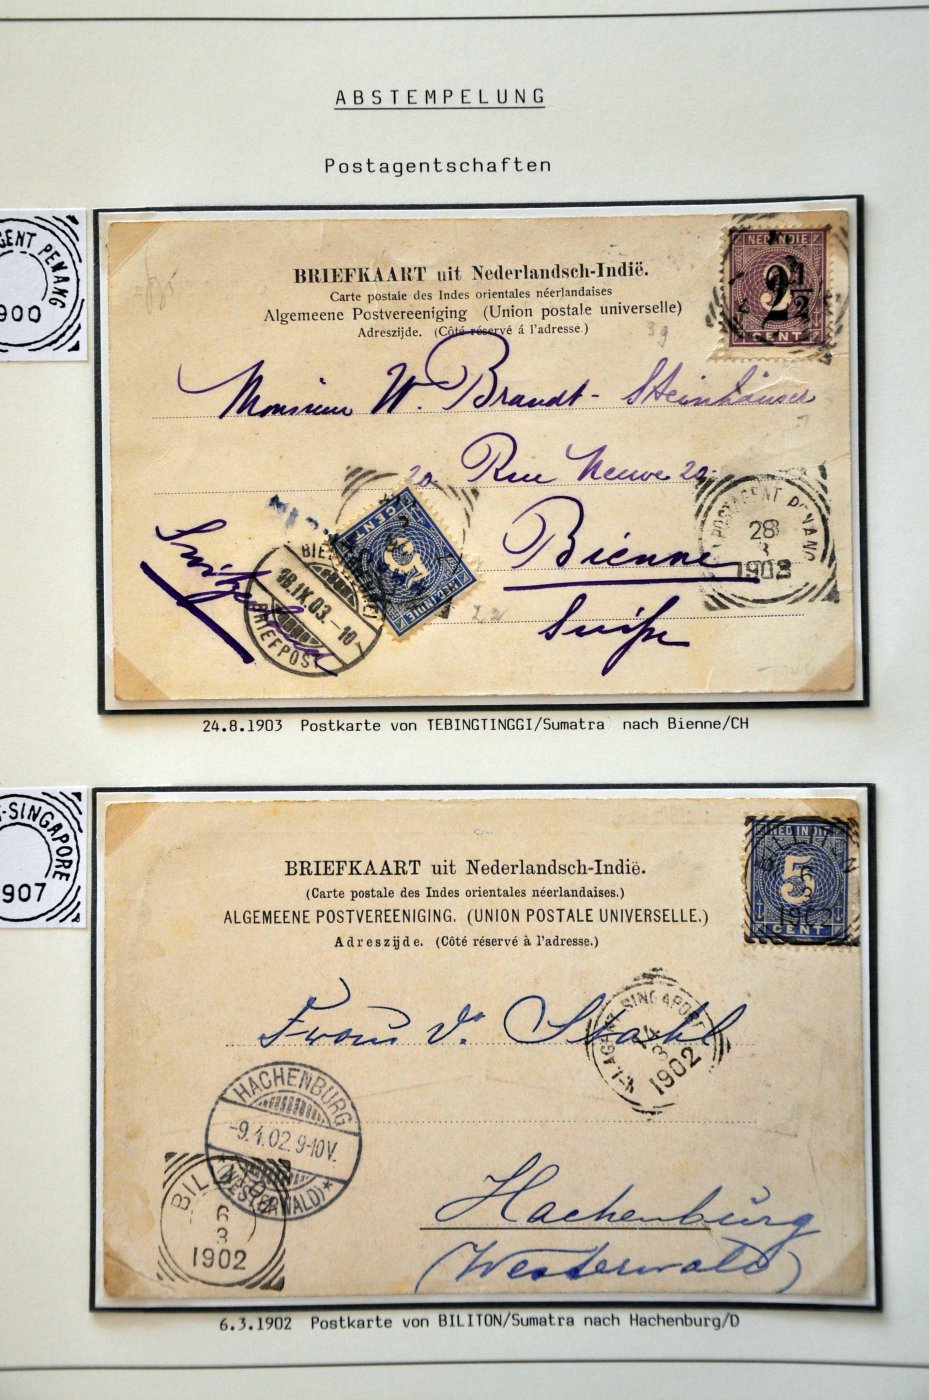 ABSTEMPELUNG
Postagentschaften
GENT PENANG
900
BRIEFKAART uit Nederlandsch-Indië.
Carte postale des Indes orientales néerlandaises
Algemeene Postvereeniging (Union postale universelle)
Adreszijde. (Côté réservé á l'adresse.)
NED INDIE
2 1/2
CENT
39
Monsieur W. Brandt-Steinhäuser
20 Rue Neuve 20
Bienne
Suisse
POSTAGENT PENANG
28
8
1903
CENT
5
NED INDIE
18.IX.03.-10
BRIEFPOST
24.8.1903 Postkarte von TEBINGTINGGI/Sumatra nach Bienne/CH
T-SINGAPORE
1907
BRIEFKAART uit Nederlandsch-Indië.
(Carte postale des Indes orientales néerlandaises.)
ALGEMEENE POSTVEREENIGING. (UNION POSTALE UNIVERSELLE.)
Adreszijde. (Côté réservé à l'adresse.)
NED INDIE
BILLITON
6
3
1902
5
CENT
N-I AGENT SINGAPORE
1902
Stahl
HACHENBURG
-9.4.02.9-10V.
(WESTERWALD)
BIL
6
3
1902
Hachenburg
(Westerwald)
6.3.1902 Postkarte von BILITON/Sumatra nach Hachenburg/D